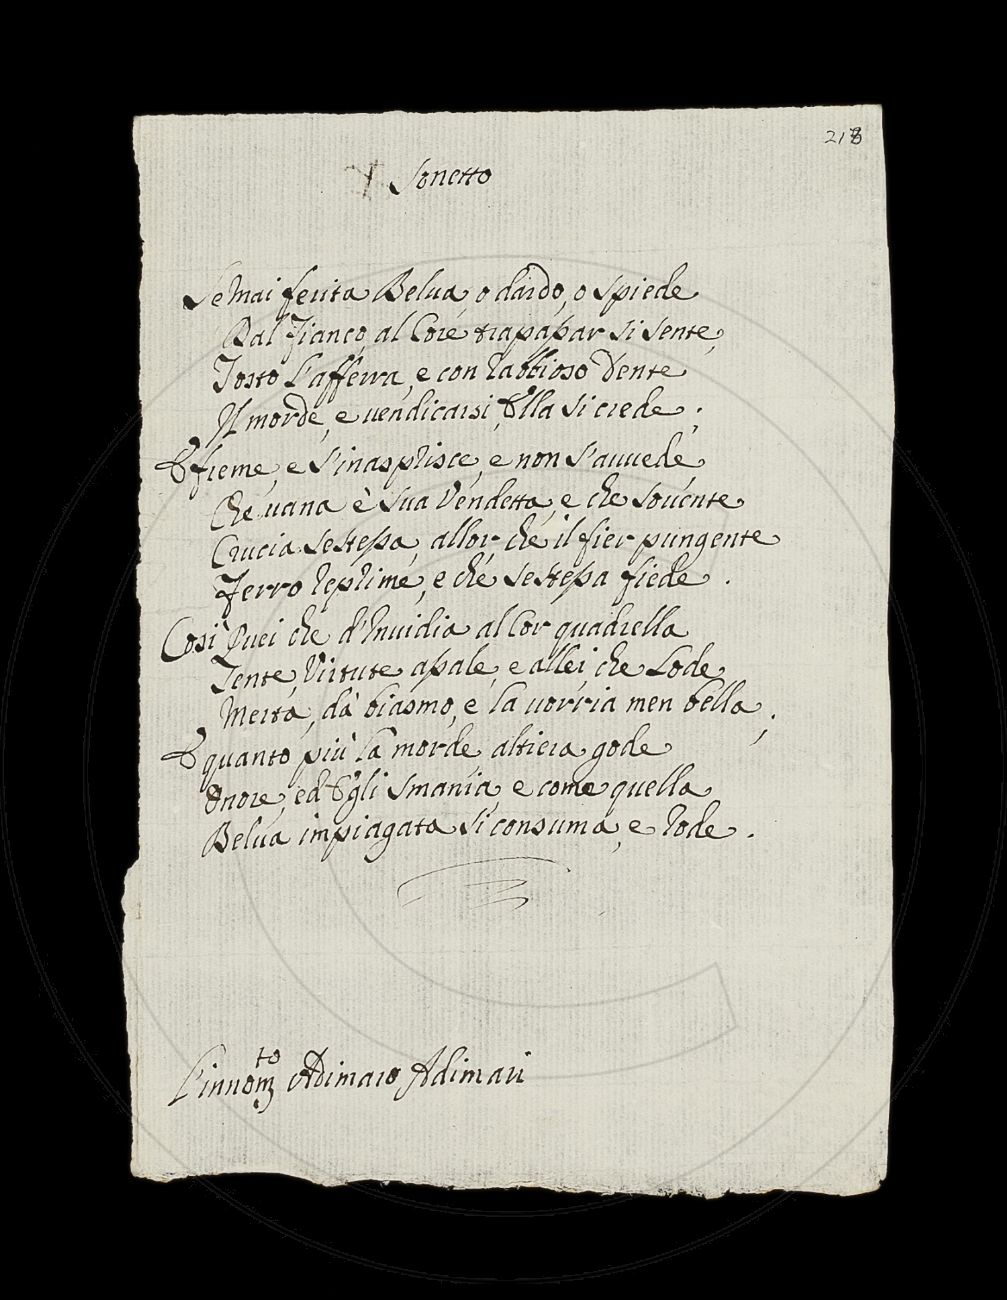 218
Sonetto
Se mai ferita Belua, o dardo, o spiede
Dal Fianco, al Core trapassar si sente,
Tosto l'afferra, e con rabbioso Dente
Il morde, e vendicarsi, Ella si crede.
E freme, e s'inasprisce, e non s'avvede
Che vana è sua Vendetta, e che sovente
Crucia se stessa, allor, che il fier pungente
Ferro reprime, e che se stessa fiede.
Così Quei che d'Invidia al Cor quadrella
Sente, Virtute assale, e allei, che Lode
Merta, dà biasmo, e la vorria men bella;
E quanto più la morde, altiera gode
Onore, ed Egli smania, e come quella
Belua impiagata si consuma, e rode.
L'innomto Adimaro Adimari